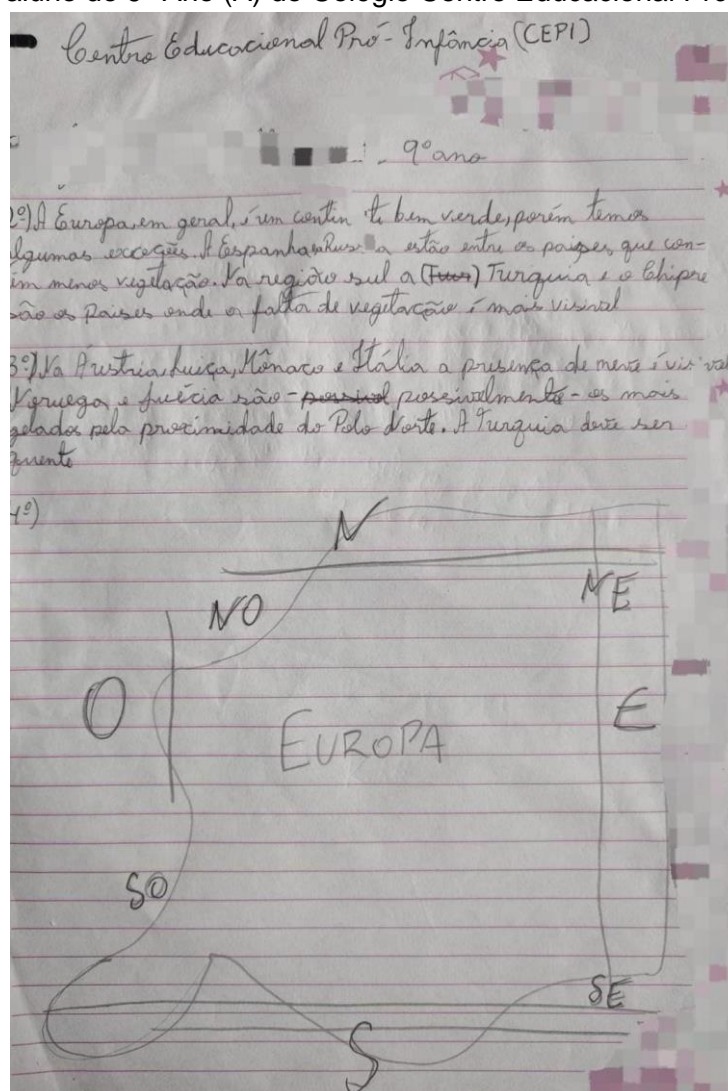 Centro Educacional Pró-Infância (CEPI)
9º ano
2º) A Europa, em geral, é um contin te bem verde, porém temos
lgumas exceções. A Espanha, Rus a estão entre os paises que con-
êm menos vegetação. Na região sul a (Tur) Turquia e o Chipre
são os Paises onde a falta de vegetação é mais visival
3º) Na Áustria, Suiça, Mônaco e Itália a presença de neve é vis val
Noruega e Suécia são - possival possivalmente - os mais
gelados pela proximidade do Polo Norte. A Turquia deve ser
quente
4º)
N
NO
NE
O
EUROPA
E
SO
SE
S